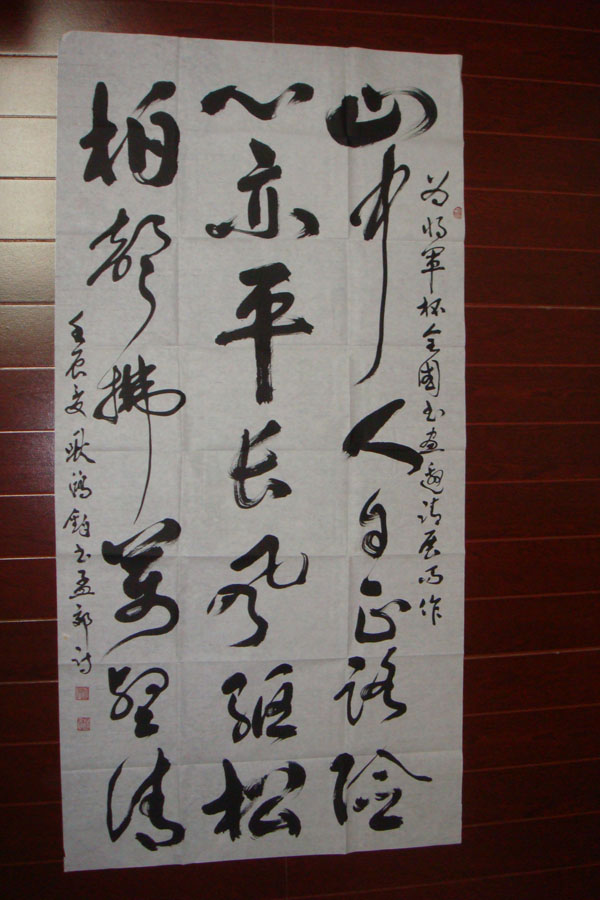 为将军杯全國书画邀请展而作
山中人自正路险
心亦平长风驱松
柏聲拂萬壑清
壬辰夏耿鸿钧书孟郊诗